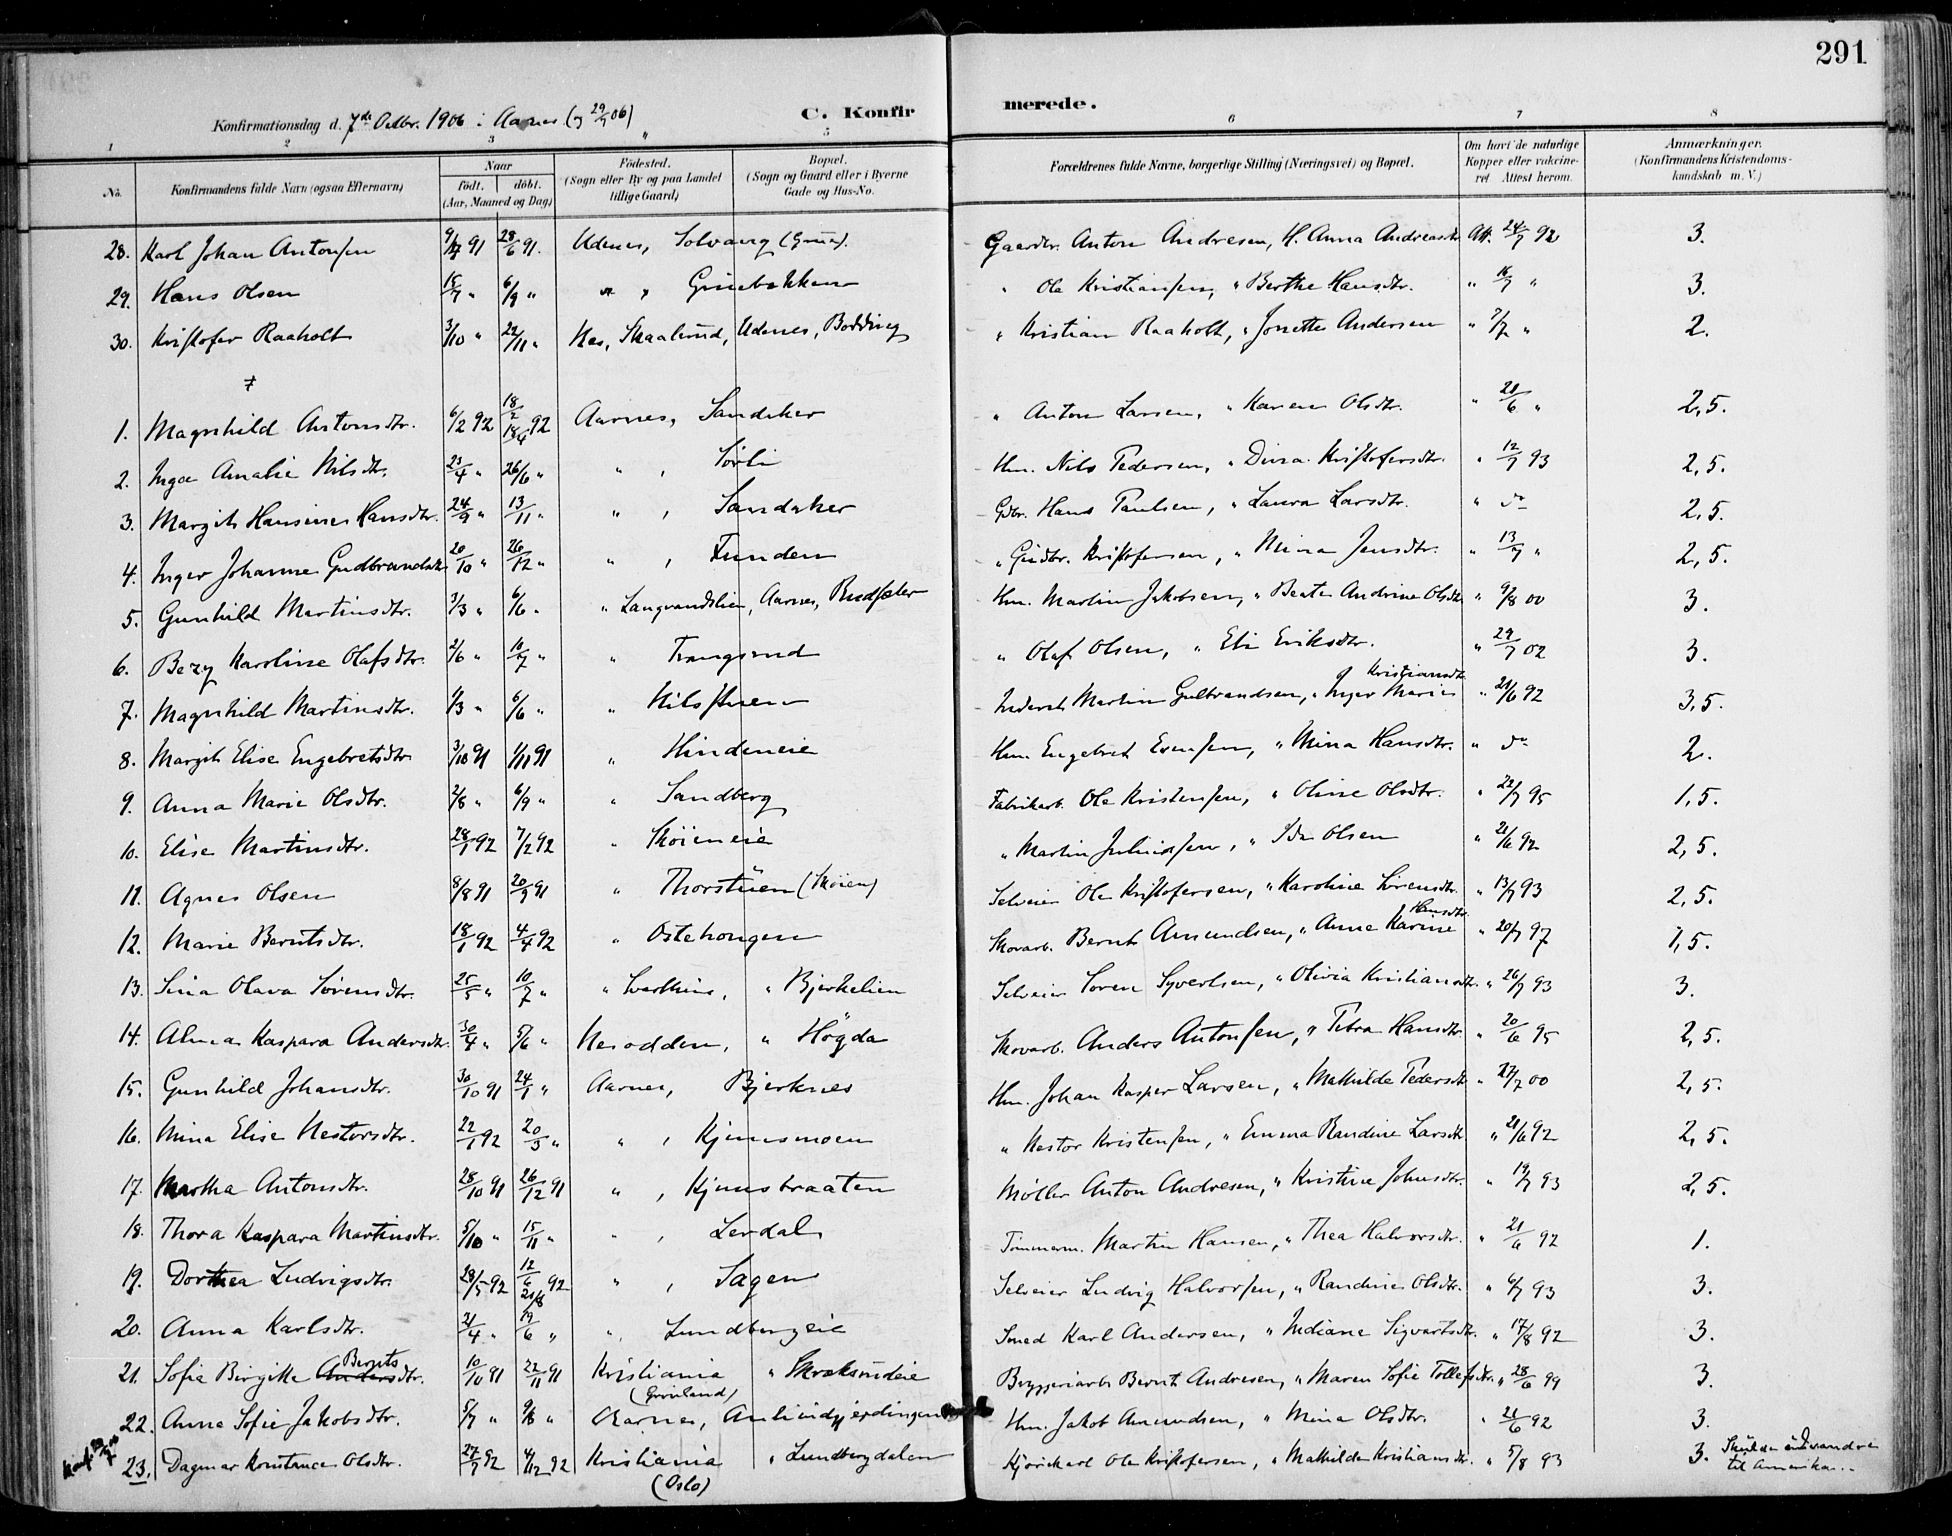 291
Konfirmationsdag d. 7de Octbr. 1906 i Aarnes (og 29/7 06)
C. Konfir merede.
1 2 3 5 6 7 8
No. Konfirmandens fulde Navn (ogsaa Efternavn) Naar født. døbt. (Aar, Maaned og Dag) Fødested. (Sogn eller By og paa Landet tillige Gaard) Bopæl. (Sogn og Gaard eller i Byerne Gade og Hus-No. Forældrenes fulde Navne, borgerlige Stilling (Næringsvei) og Bopæl. Om havt de naturlige Kopper eller vakcineret. Attest herom. Anmærkninger. (Konfirmandens Kristendomskundskab m. V.)
28. Karl Johan Antonsen 91 28/6 91. Udenes, Solvang Gaardbr. Anton Andresen, H. Anna Andreasdtr. Att. 24/7 92 3.
29. Hans Olsen 18/7 " 6/9 " " " Gruebakken " Ole Kristiansen, " Berthe Hansdtr. " 16/7 " 3.
30. Kristofer Raaholt 3/10 " 22/11 " Nes, Skaalerud, Udenes, Bodding " Kristian Raaholt, " Jonette Andersen " 7/7 " 2.
1. Magnhild Antonsdtr. 6/2 92 18/2 18/4 92 Aarnes, Sandaker " Anton Larsen, " Karen Olsdtr. " 21/6 " 2,5.
2. Inga Amalie Nilsdtr. 23/4 " 26/6 " " , Sørli Hm. Nils Pedersen, " Dina Kristofersdtr. " 12/7 93 2,5.
3. Margit Hansine Hansdtr. 24/9 " 13/11 " " , Sandaker Gdbr. Hans Paulsen, " Laura Larsdtr. " do 2,5.
4. Inger Johanne Gudbrandsdtr. 20/10 " 26/12 " " , Funden " Gudbr. Kristofersen, " Mina Jensdtr. " 13/7 " 2,5.
5. Gunhild Martinsdtr. 3/3 " 6/6 " " Langvandslien, Aarnes, Rudsæter Hm. Martin Jakobsen, " Beate Andrine Olsdtr. " 9/8 00 3.
6. Bezy Karoline Olafsdtr. 2/6 " 10/7 " " Trangsrud " Olaf Olsen, " Eli Eriksdtr. " 29/7 02 3.
7. Magnhild Martinsdtr. 1/3 " 6/6 " " Nilsstuen Inderst Martin Gulbrandsen, " Inger Marie Kristiansdtr. " 21/6 92 3,5.
8. Margit Elise Engebretsdtr. 3/10 91 1/11 91 " Hindeneie Hm. Engebret Evensen, " Mina Hansdtr. " do 2.
9. Anna Marie Olsdtr. 2/8 " 6/9 " " Sandberg Fabrikarb. Ole Kristensen, " Oline Olsdtr. " 22/7 95 1,5.
10. Elise Martinsdtr. 28/1 92 7/2 92 " Skøieneie " Martin Juliussen, " Ida Olsen " 21/6 92 2,5.
11. Agnes Olsen 8/8 91 20/9 91 " Thorstuen (Skøien) Selveier Ole Kristofersen, " Karoline Sørensdtr. " 13/7 93 2,5.
12. Marie Berntsdtr. 18/1 92 4/4 92 " Ostehougen Skovarb. Bernt Amundsen, " Anne Karine Hansdtr. " 20/7 97 1,5.
13. Sina Olava Sørensdtr. 25/5 " 10/7 " " , " Bjerkelien Selveier Søren Syvertsen, " Olivia Kristiansdtr. " 26/7 93 3.
14. Alma Kaspara Andersdtr. 30/4 " 5/6 " Nesodden, " Høgda Skovarb. Anders Antonsen, " Petra Hansdtr. " 20/6 95 2,5.
15. Gunhild Johansdtr. 30/10 91 24/1 " Aarnes, Bjerknes Hm. Johan Kasper Larsen, " Mathilde Pedersdtr. " 27/7 00 2,5.
16. Mina Elise Nestorsdtr. 22/1 92 20/3 " " , Kjensmoen " Nestor Kristensen, " Emma Randine Larsdtr. " 21/6 92 2,5.
17. Martha Antonsdtr. 28/10 91 26/12 91 " , Kjensbraaten Møller Anton Andresen, " Kristine Johnsdtr. " 19/7 93 2,5.
18. Thora Kaspara Martinsdtr. 5/10 " 15/11 " " , Lerdal Tømmerm. Martin Hansen, " Thea Halvorsdtr. " 21/6 92 1.
19. Dorthea Ludvigsdtr. 28/5 92 12/6 21/8 92 " , Sagen Selveier Ludvig Halvorsen, " Randine Olsdtr. " 6/7 93 3.
20. Anna Karlsdtr. 21/4 " 19/6 " " , Lundbergeie Smed Karl Andersen, " Indiane Sigvartsdtr. " 17/8 92 3.
21. Sofie Birgitte Anders Berntsdtr. 10/10 91 22/11 91 Kristiania (Grønland) " Bryggeriarb. Bernt Andresen, " Maren Sofie Tollefsdtr. " 28/6 99 3.
22. Anna Sofie Jakobsdtr. 5/7 " 9/8 " Aarnes, Hm. Jakob Amundsen, " Mina Olsdtr. " 21/6 92 3.
23. Dagmar Konstance Olsdtr. 27/9 92 4/12 92 Kristiania (Oslo) " Lundbergdalen Kjørekarl Ole Kristofersen, " Mathilde Kristiansdtr. " 5/8 93 3. Skulde udvandre til Amerika.